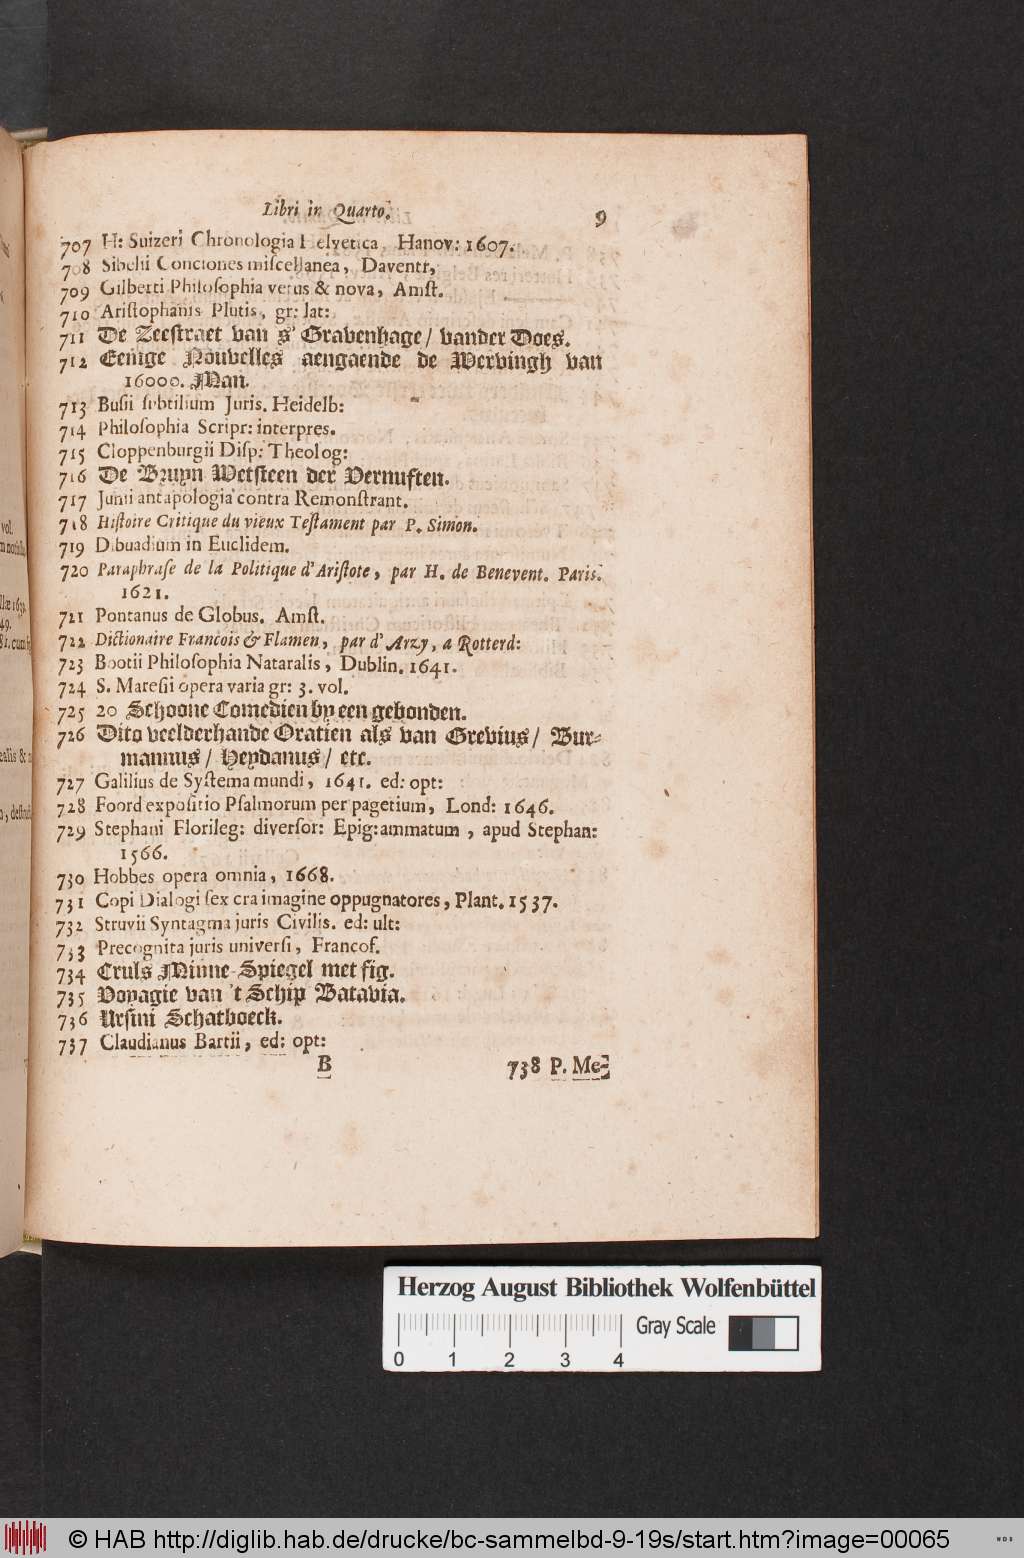 Libri in Quarto. 9
707 H: Suizeri Chronologia Helvetica, Hanov: 1607.
708 Sibelii Conciones miscellanea, Daventr,
709 Gilberti Philosophia vetus & nova, Amst.
710 Aristophanis Plutis, gr: lat:
711 De Zeestraet van s' Gravenhage / vander Does.
712 Eenige Nouvelles aengaende de Wervingh van
16000. Man.
713 Busii sebtilium Juris. Heidelb:
714 Philosophia Scripr: interpres.
715 Cloppenburgii Disp: Theolog:
716 De Bruyn Wetsteen der Vernuften.
717 Junii antapologia contra Remonstrant.
718 Histoire Critique du vieux Testament par P. Simon.
719 Dibuadium in Euclidem.
720 Paraphrase de la Politique d'Aristote, par H. de Benevent. Paris.
1621.
721 Pontanus de Globus. Amst.
722 Dictionaire Francois & Flamen, par d'Arzy, a Rotterd:
723 Bootii Philosophia Nataralis, Dublin. 1641.
724 S. Maresii opera varia gr: 3. vol.
725 20 Schoone Comedien by een gebonden.
726 Dito veelderhande Oratien als van Grevius / Bur-
mannus / Heydanus / etc.
727 Galilius de Systema mundi, 1641. ed: opt:
728 Foord expositio Psalmorum per pagetium, Lond: 1646.
729 Stephani Florileg: diversor: Epig:ammatum, apud Stephan:
1566.
730 Hobbes opera omnia, 1668.
731 Copi Dialogi sex cra imagine oppugnatores, Plant. 1537.
732 Struvii Syntagma juris Civilis. ed: ult:
733 Precognita juris universi, Francof.
734 Cruls Minne-Spiegel met fig.
735 Voyagie van 't Schip Batavia.
736 Ursini Schatboeck.
737 Claudianus Bartii, ed: opt:
B 738 P. Me-
vol.
49.
Herzog August Bibliothek Wolfenbüttel
Gray Scale
0 1 2 3 4
© HAB http://diglib.hab.de/drucke/bc-sammelbd-9-19s/start.htm?image=00065